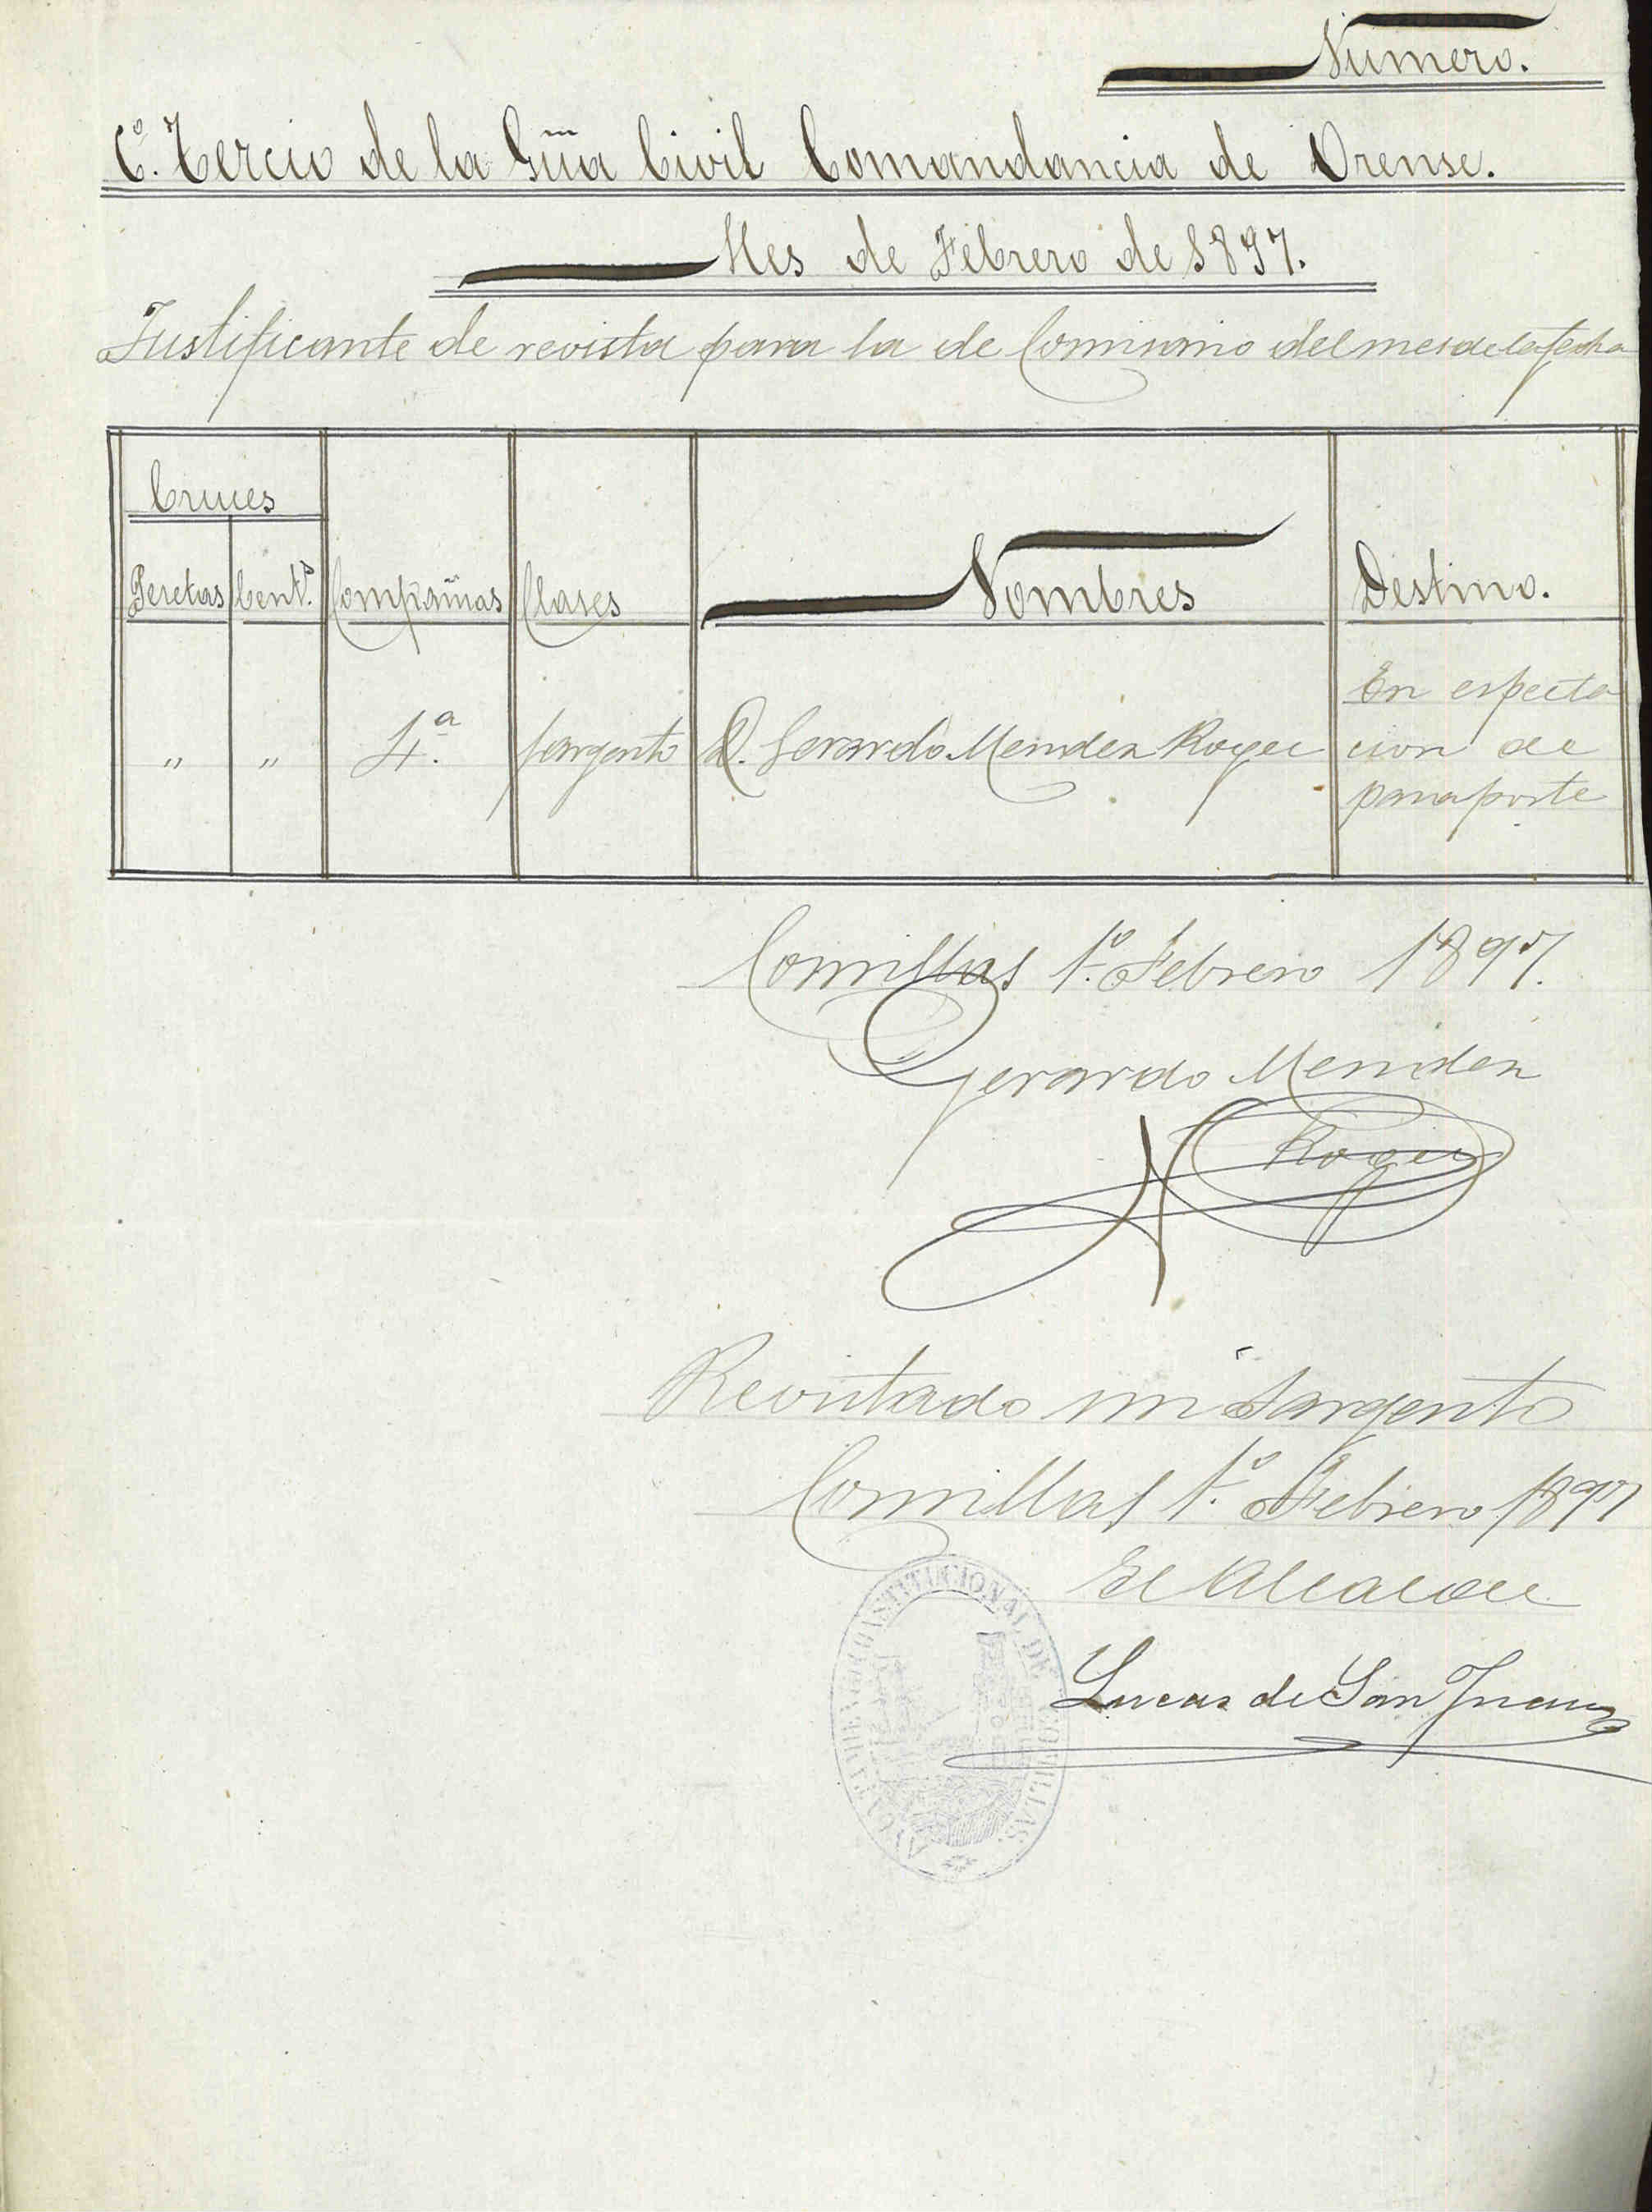 Número.
6.º Tercio de la Güia Civil Comandancia de Orense.
Mes de Febrero de 1897.
Justificante de revista para la de Comisario del mes de la fecha
Cruces
Pesetas Cent.s Compañias Clases Nombres Destino.
" " 4.ª Sargento D. Gerardo Mendez Roger En especta
cion de
pasaporte
Comillas 1.º Febrero 1897.
Gerardo Mendez
Roger
Revistado un Sargento
Comillas 1.º Febrero 1897
El Alcalde
Lucas de San Juan
ALCALDIA CONSTITUCIONAL DE COMILLAS